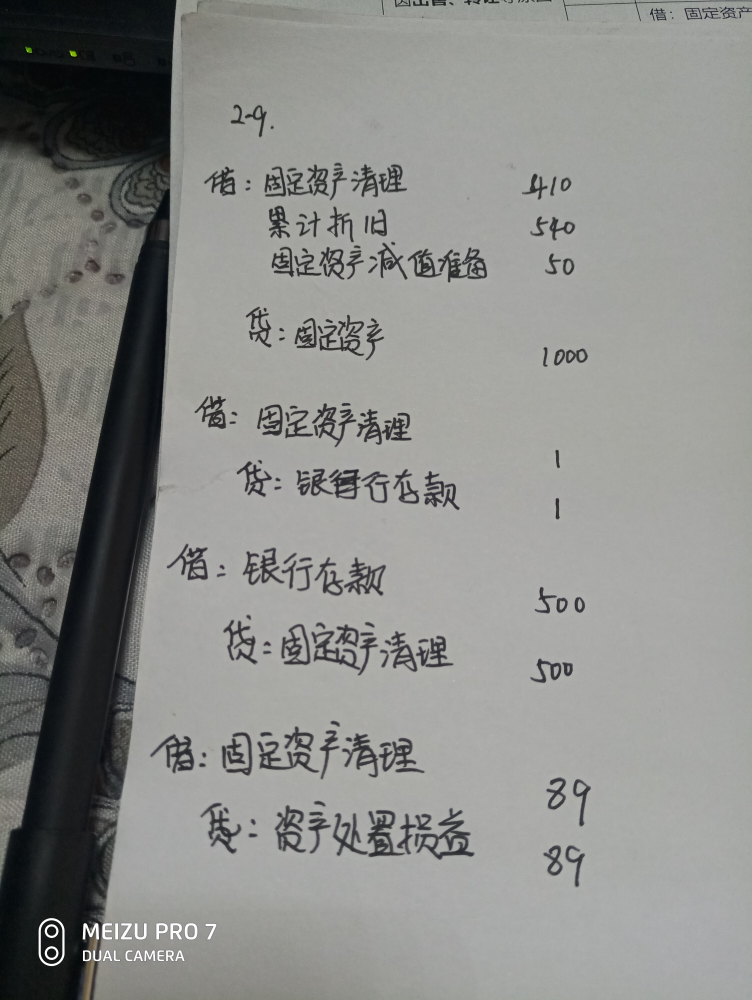 借：固定资产
2-9.
借：固定资产清理 410
累计折旧 540
固定资产减值准备 50
贷：固定资产 1000
借：固定资产清理 1
贷：银行存款 1
借：银行存款 500
贷：固定资产清理 500
借：固定资产清理 89
贷：资产处置损益 89
MEIZU PRO 7
DUAL CAMERA